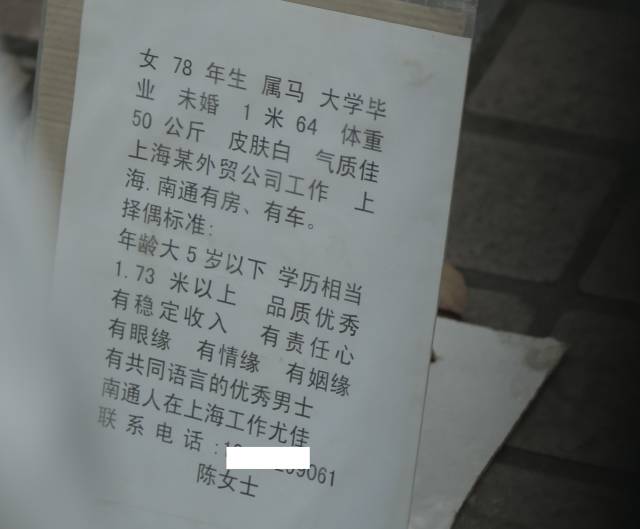 女 78 年生 属马 大学毕
业 未婚 1 米 64 体重
50 公斤 皮肤白 气质佳
上海某外贸公司工作 上
海.南通有房、有车。
择偶标准:
年龄大 5 岁以下 学历相当
1.73 米以上 品质优秀
有稳定收入 有责任心
有眼缘 有情缘 有姻缘
有共同语言的优秀男士
南通人在上海工作尤佳
联系电话:1 209061
陈女士